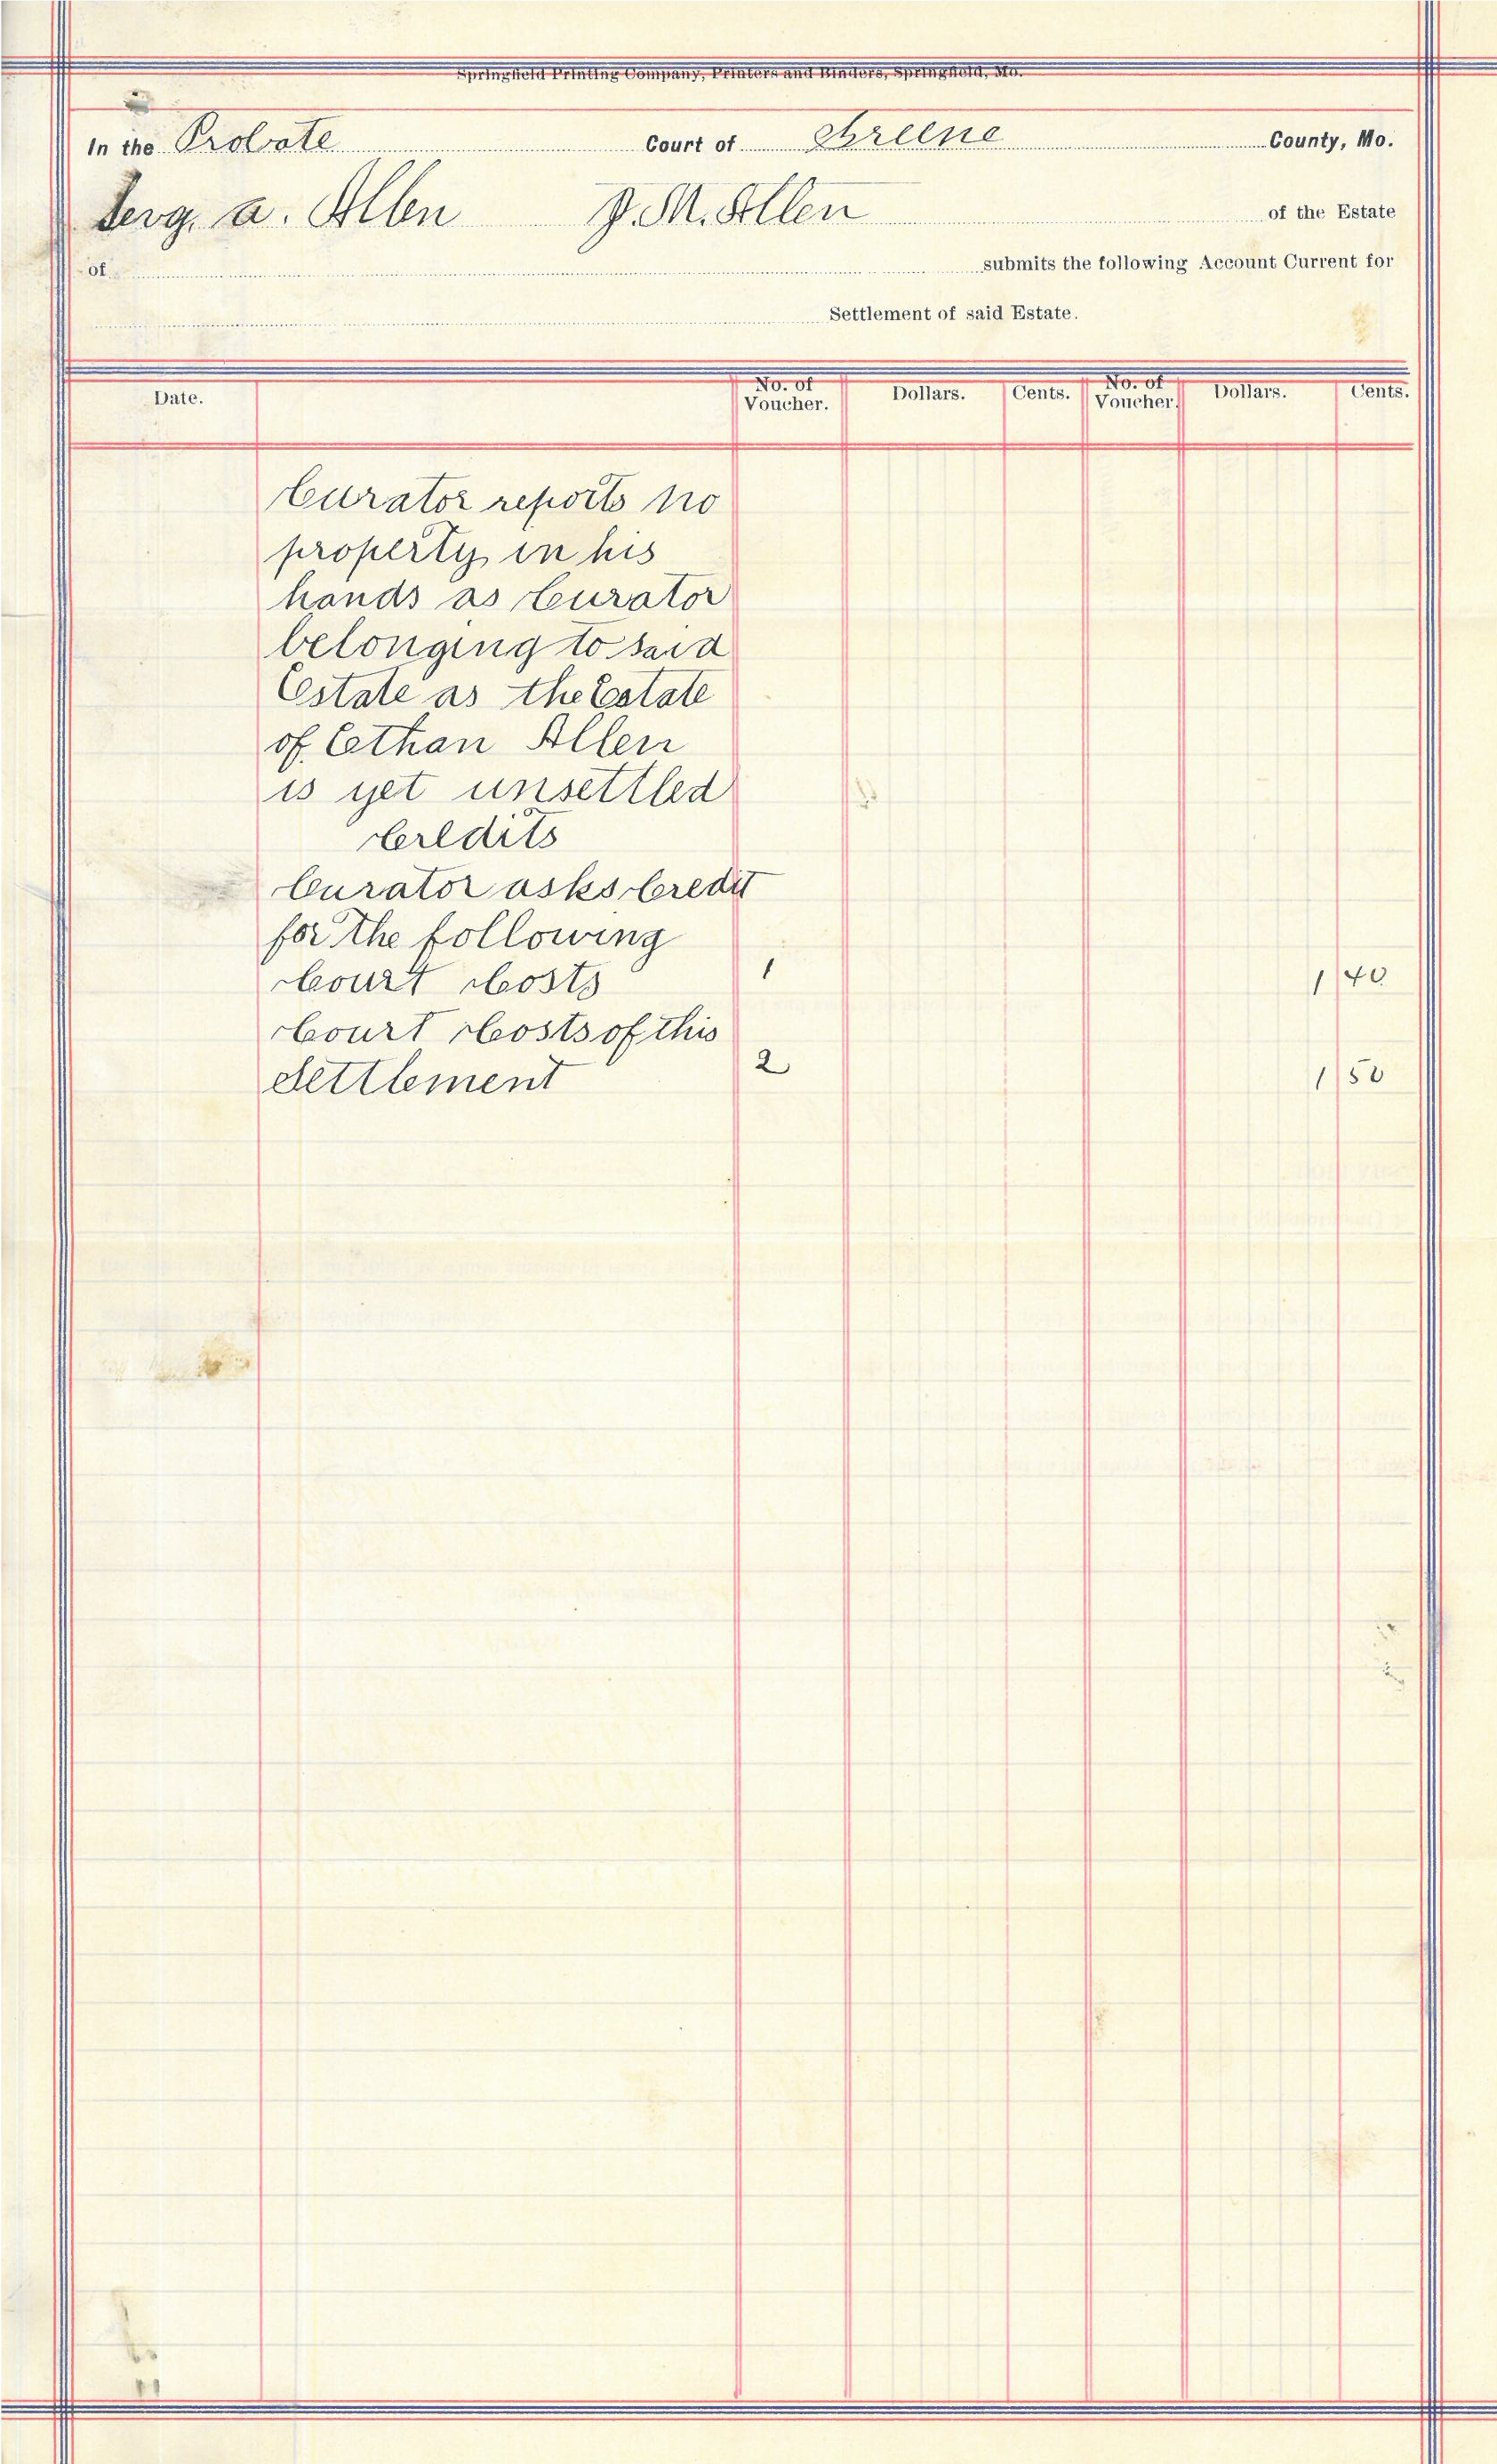 Springfield Printing Company, Printers and Binders, Springfield, Mo.
In the Probate Court of Greene County, Mo.
a. Allen J. M. Allen of the Estate
of submits the following Account Current for
Settlement of said Estate.
Date. No. of Voucher. Dollars. Cents. No. of Voucher. Dollars. Cents.
Curator reports no
property in his
hands as Curator
belonging to said
Estate as the Estate
of Eethan Allen
is yet unsettled
Credits
Curator asks Credit
for the following
Court Costs 1 1 40
Court Costs of this
Settlement 2 1 50